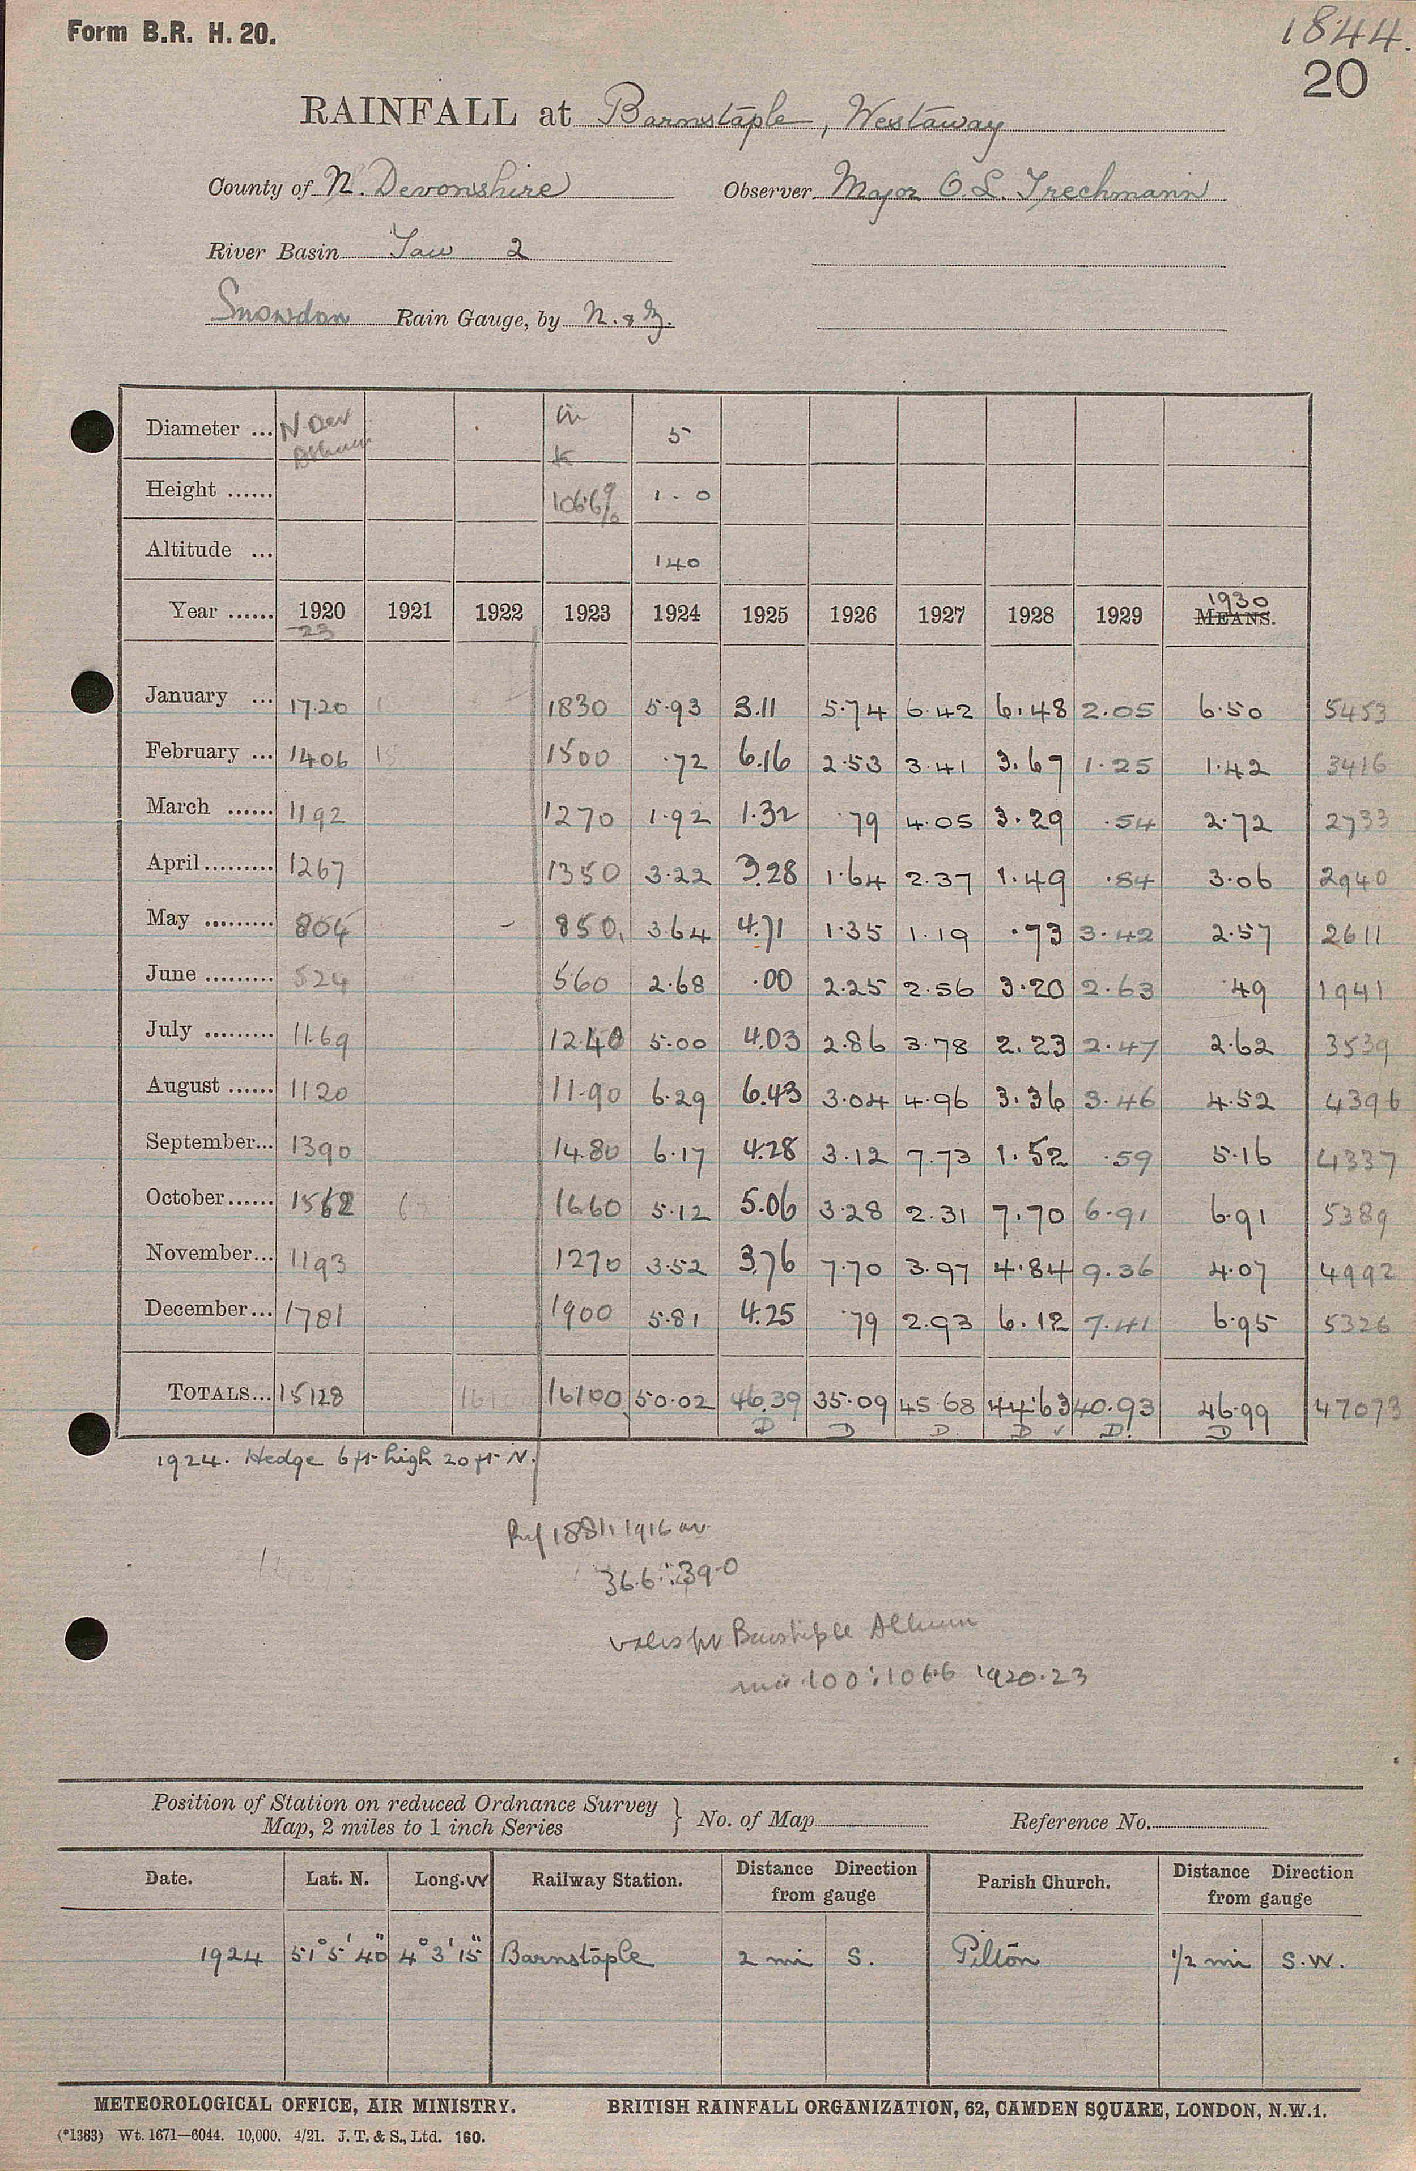 Form B.R. H. 20.
1844.
20
RAINFALL at Barnstaple, Westaway
County of N. Devonshire Observer Major O. L. Trechmann
River Basin Taw 2
Snowdon Rain Gauge, by N. & Z.
Diameter ... N Dev in 5
k
Height ...... 106.6% 1 - 0
Altitude ... 140
Year ...... 1920 1921 1922 1923 1924 1925 1926 1927 1928 1929 1930 MEANS.
-23
January ... 17.20 1830 5.93 3.11 5.74 6.42 6.48 2.05 6.50 5453
February ... 1406 15 1500 .72 6.16 2.53 3.41 3.67 1.25 1.42 3416
March ...... 1192 1270 1.92 1.32 .79 4.05 3.29 .54 2.72 2733
April ......... 1267 1350 3.22 3.28 1.64 2.37 1.49 .84 3.06 2940
May ......... 804 850 3.64 4.71 1.35 1.19 .73 3.42 2.57 2611
June ......... 524 560 2.68 .00 2.25 2.56 3.20 2.63 .49 1941
July ......... 11.69 1240 5.00 4.03 2.86 3.78 2.23 2.47 2.62 3539
August ...... 1120 11.90 6.29 6.43 3.04 4.96 3.36 3.46 4.52 4396
September... 1390 14.80 6.17 4.28 3.12 7.73 1.52 .59 5.16 4337
October...... 1562 1660 5.12 5.06 3.28 2.31 7.70 6.91 6.91 5389
November... 1193 1270 3.52 3.76 7.70 3.97 4.84 9.36 4.07 4992
December... 1781 1900 5.81 4.25 .79 2.93 6.12 7.41 6.95 5326
TOTALS... 15128 16100 50.02 46.39 35.09 45.68 44.63 40.93 46.99 47073
D D D D ✓ D. D
1924. Hedge 6 ft. high 20 ft. N.
1881 1916 av.
36.6 : 39.0
Barnstaple
100 : 106.6 1920-23
Position of Station on reduced Ordnance Survey
Map, 2 miles to 1 inch Series } No. of Map Reference No.
Date. Lat. N. Long. W Railway Station. Distance Direction from gauge Parish Church. Distance Direction from gauge
1924 51° 5' 40" 4° 3' 15" Barnstaple 2 mi S. Pilton 1/2 mi S.W.
METEOROLOGICAL OFFICE, AIR MINISTRY. BRITISH RAINFALL ORGANIZATION, 62, CAMDEN SQUARE, LONDON, N.W.1.
(*1383) Wt. 1671—6044. 10,000. 4/21. J. T. & S., Ltd. 160.